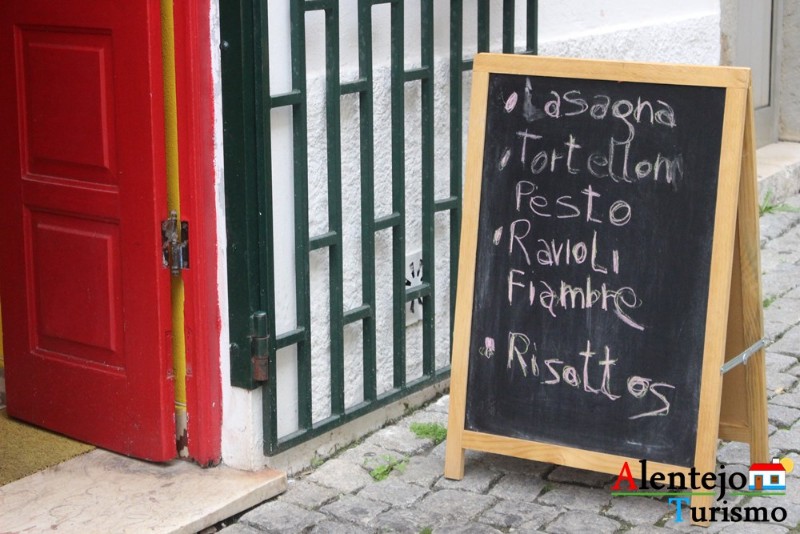 • Lasagna
• Tortellom
Pesto
• Ravioli
Fiambre
• Risottos
Alentejo
Turismo